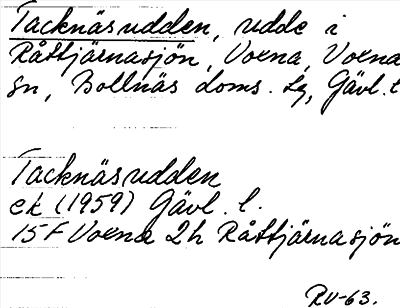 Tacknäsudden, udde i
Råttjärnasjön, Voxna, Voxna
sn, Bollnäs doms. lg, Gävl. l
Tacknäsudden
ek (1959) Gävl. l.
15F Voxna 2h Råttjärnasjön
RV-63.